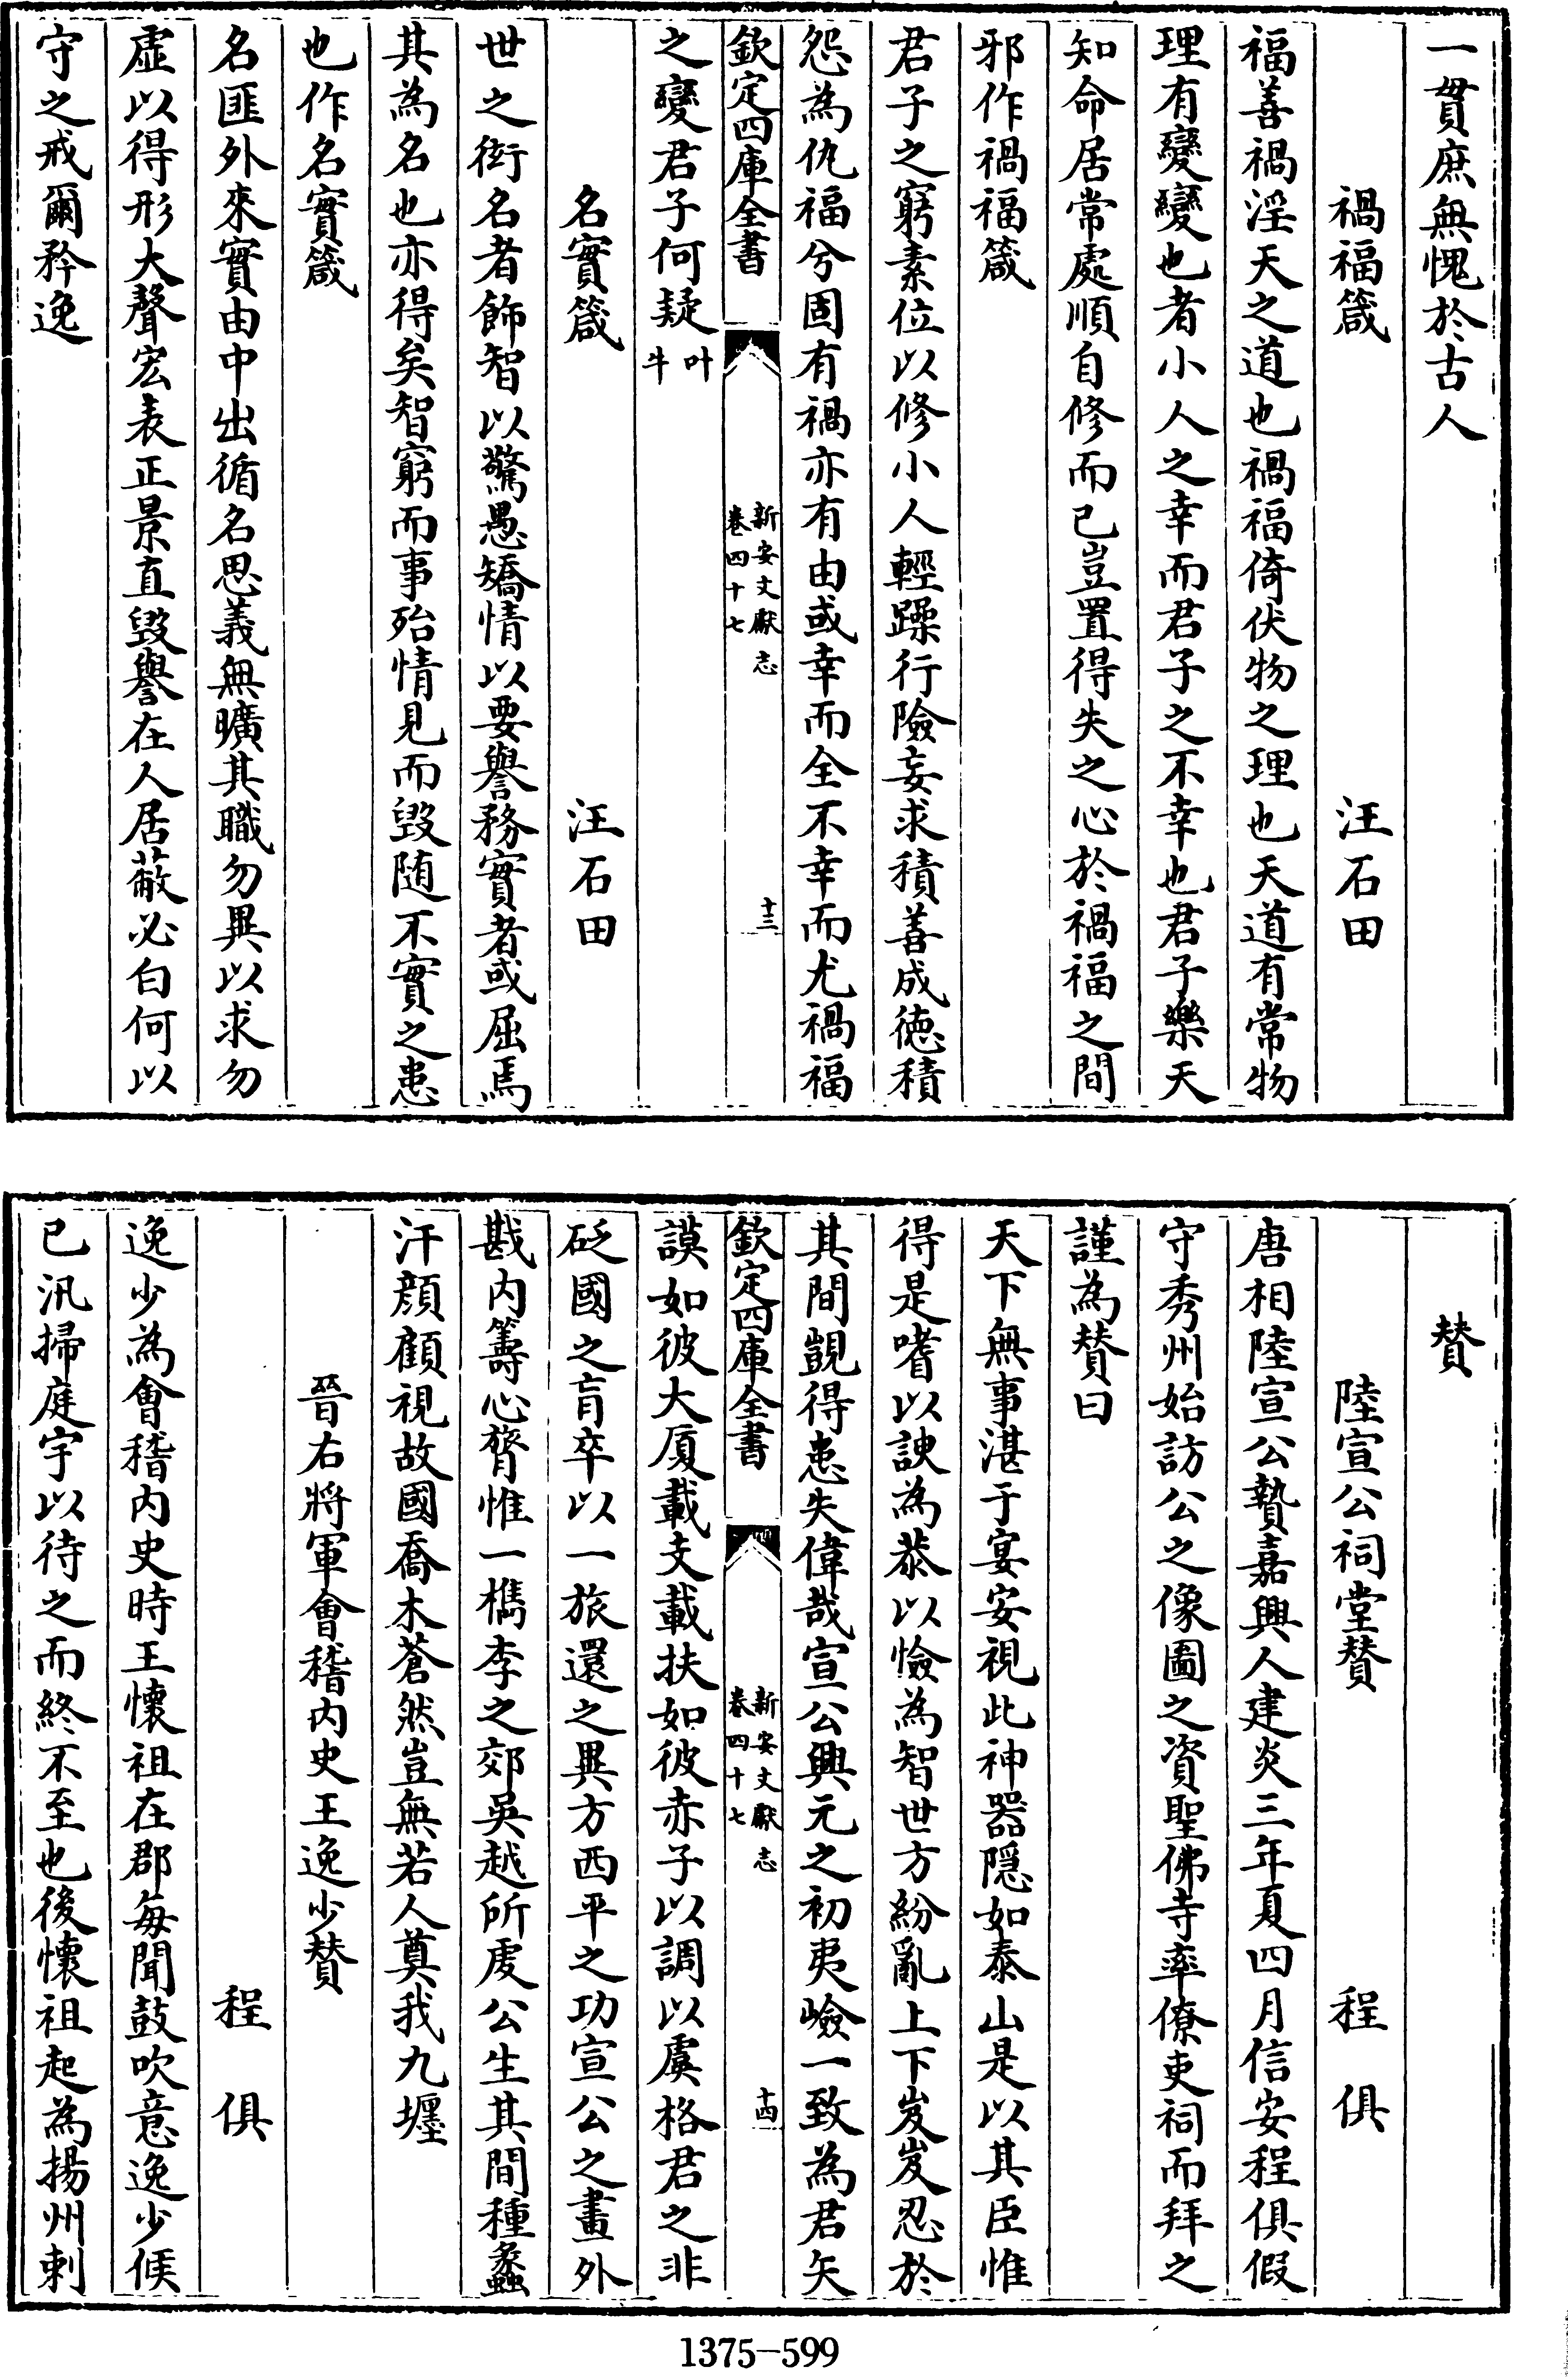 一貫庶無愧於古人
禍福箴 汪石田
福善禍淫天之道也禍福倚伏物之理也天道有常物
理有變變也者小人之幸而君子之不幸也君子樂天
知命居常處順自修而已豈置得失之心於禍福之間
邪作禍福箴
君子之窮素位以修小人輕躁行險妄求積善成德積
怨為仇福兮固有禍亦有由或幸而全不幸而尤禍福
欽定四庫全書 新安文獻志 卷四十七 十三
之變君子何疑叶牛
名實箴 汪石田
世之衒名者飾智以驚愚矯情以要譽務實者或屈焉
其為名也亦得矣智窮而事殆情見而毀隨不實之患
也作名實箴
名匪外來實由中出循名思義無曠其職勿異以求勿
虛以得形大聲宏表正景直毀譽在人居蔽必白何以
守之戒爾矜逸
贊
陸宣公祠堂贊 程俱
唐相陸宣公贄嘉興人建炎三年夏四月信安程俱假
守秀州始訪公之像圖之資聖佛寺率僚吏祠而拜之
謹為贊曰
天下無事湛于宴安視此神器隱如泰山是以其臣惟
得是嗜以諛為恭以憸為智世方紛亂上下岌岌忍於
其間覬得患失偉哉宣公興元之初夷嶮一致為君矢
欽定四庫全書 新安文獻志 卷四十七 十四
謨如彼大厦載支載扶如彼赤子以調以虞格君之非
砭國之肓卒以一旅還之異方西平之功宣公之畫外
戡内籌心膂惟一檇李之郊吳越所處公生其間種蠡
汗顔顧視故國喬木蒼然豈無若人奠我九㕓
晉右將軍會稽内史王逸少贊
程俱
逸少為會稽内史時王懷祖在郡每聞鼓吹意逸少候
已汛掃庭宇以待之而終不至也後懷祖起為揚州刺
1375-599